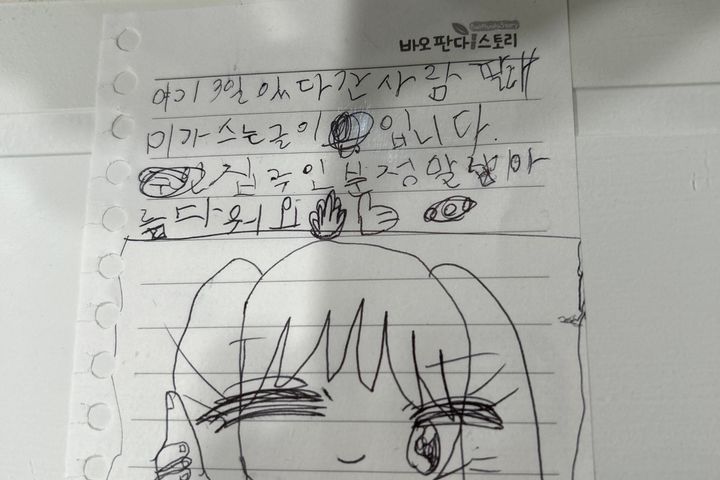 바오 판다 스토리
여기 3일 있다간 사람 딸래
미가 스는글이 입니다.
집 주인 분 정말 아
름다워요